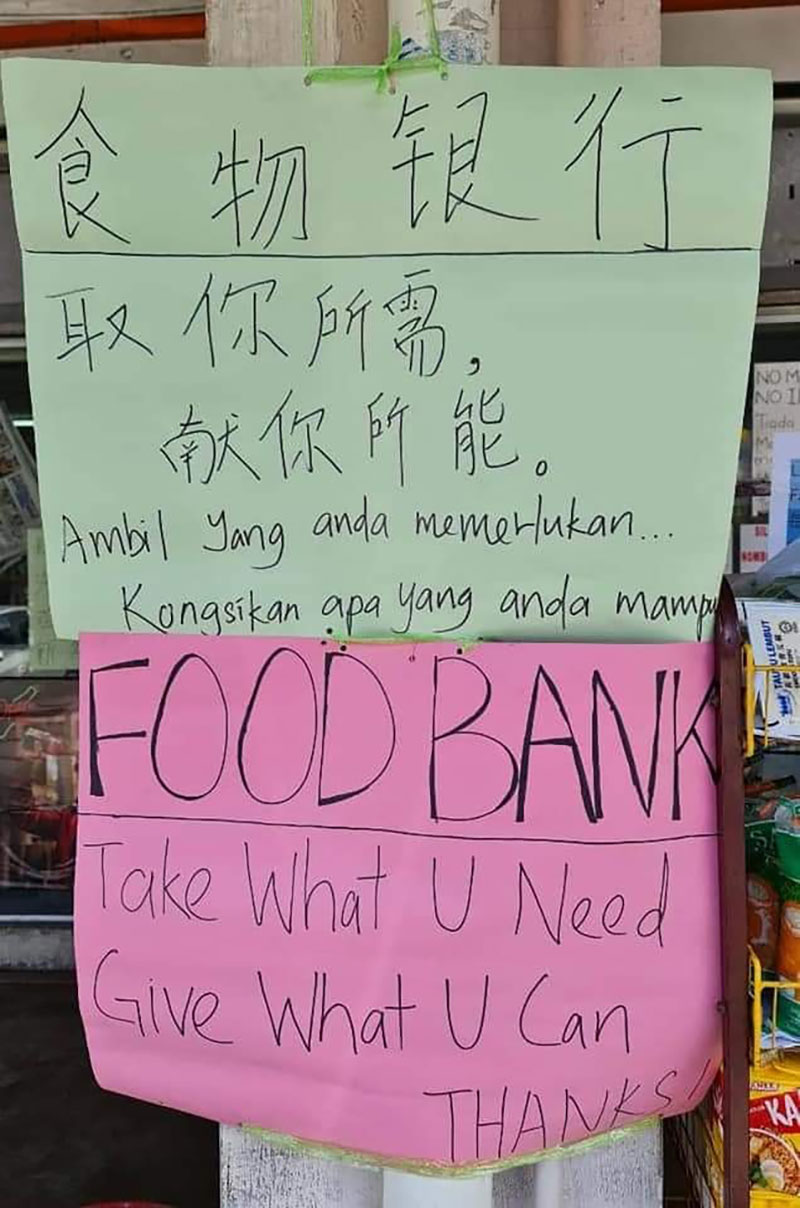 食物银行
取你所需，
献你所能。
Ambil yang anda memerlukan...
Kongsikan apa yang anda mampu
FOOD BANK
Take What U Need
Give What U Can
THANKS!
NO M
NO I
Tiada
TAUFU LEMBUT
KA